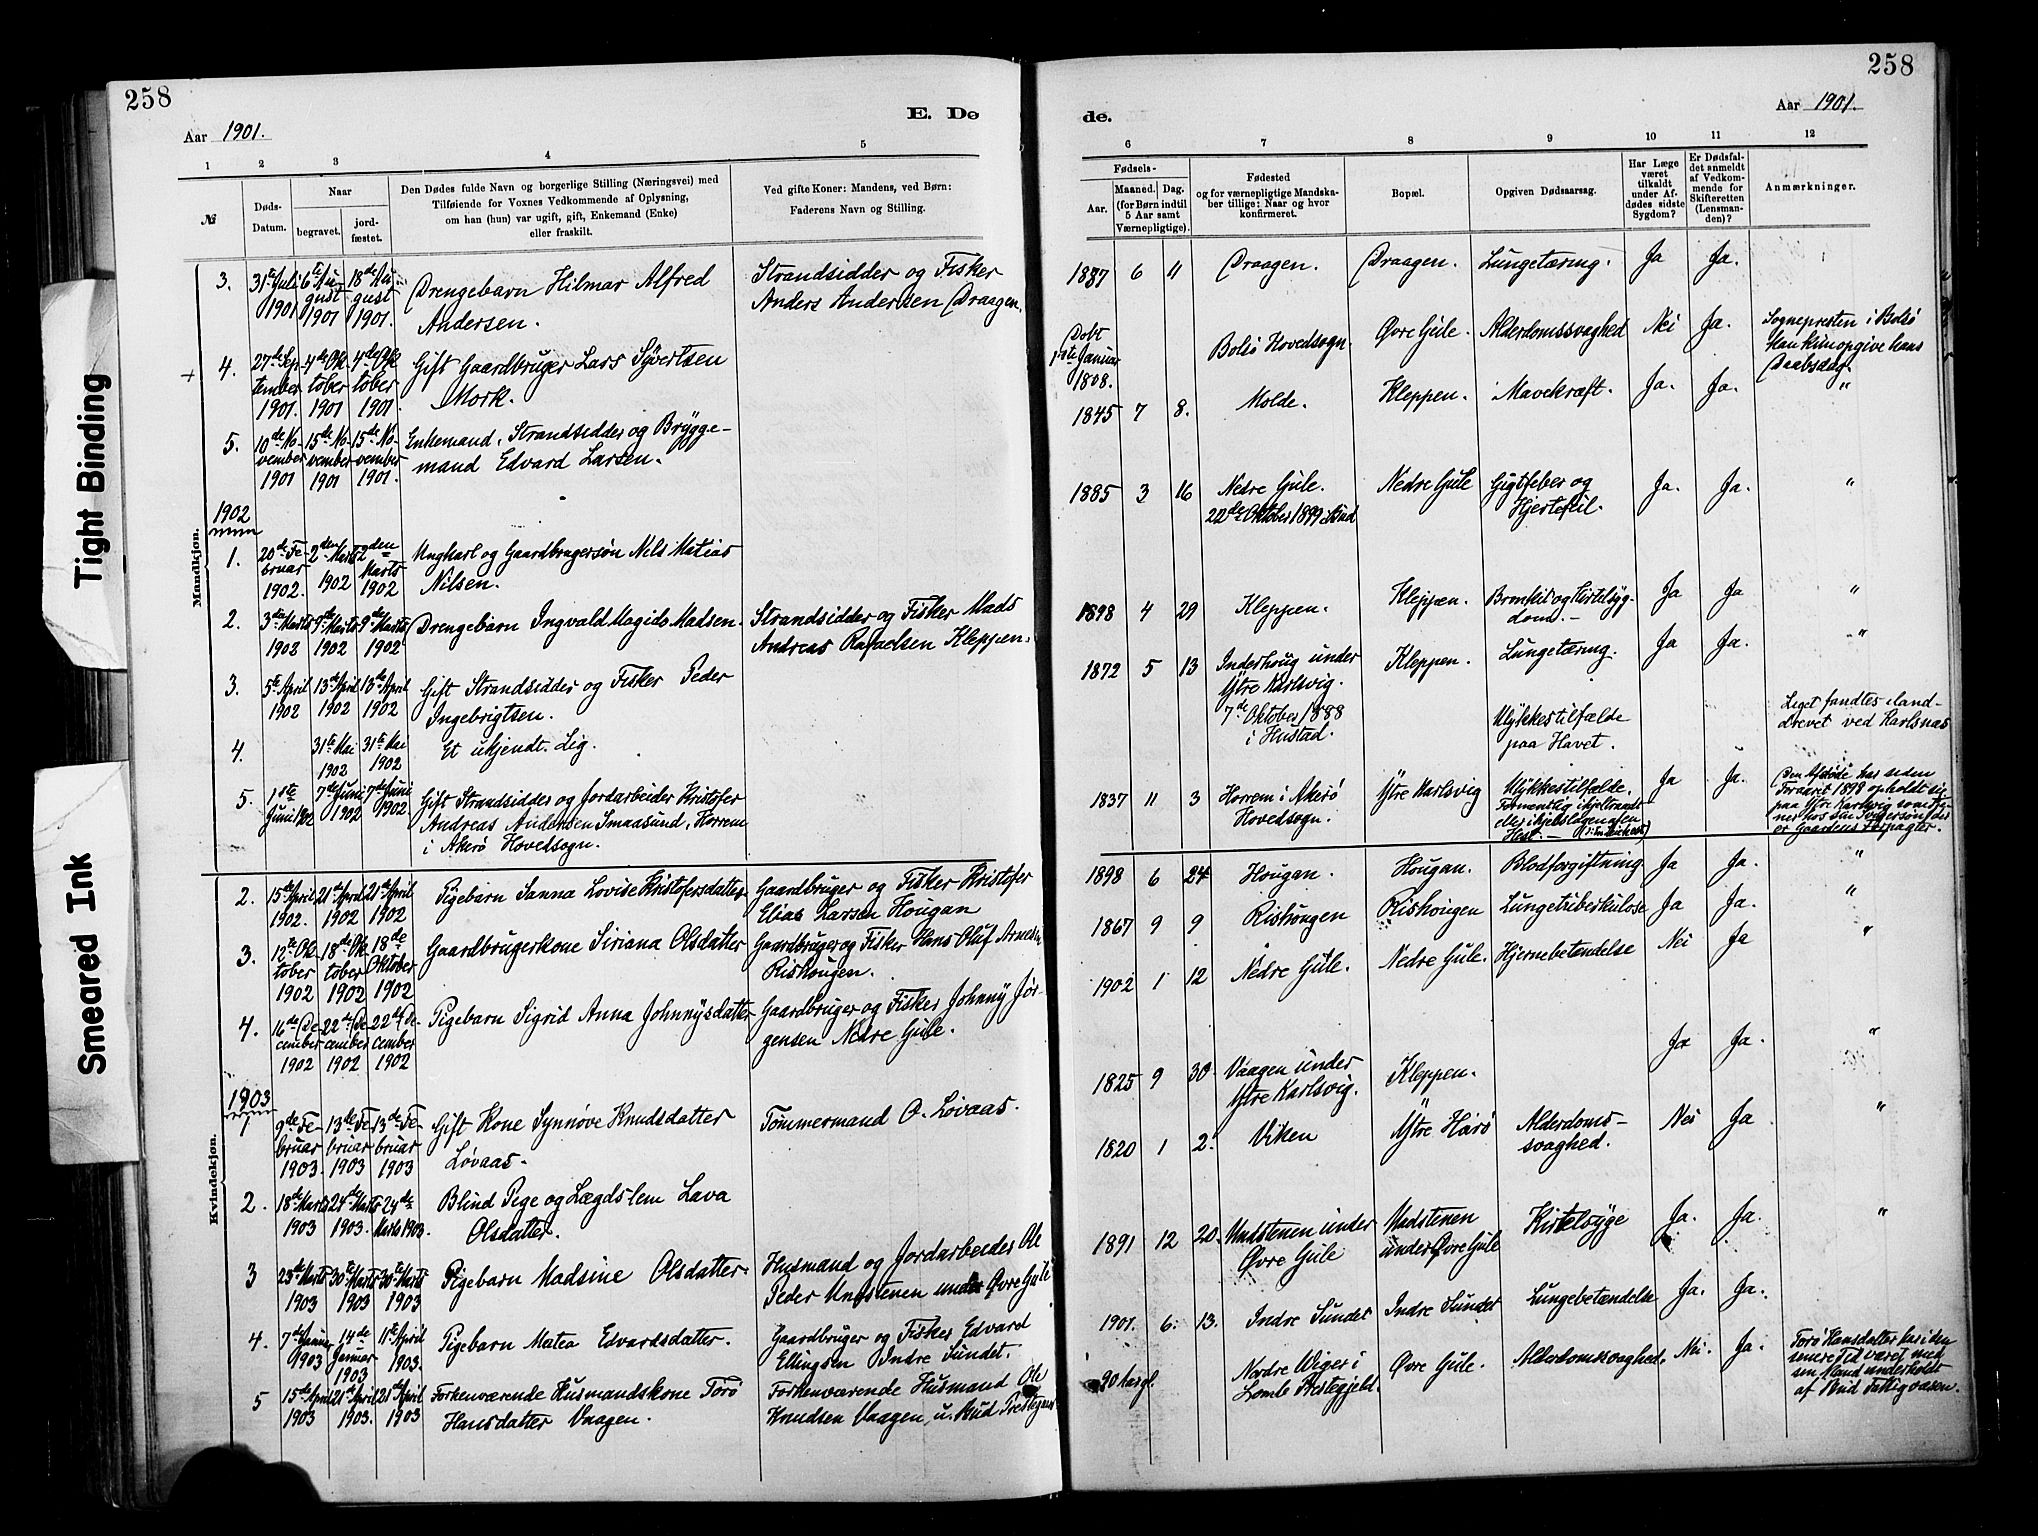 258
Aar 1901.
E. Dø
1 2 3 4 5
№
Døds-
Datum.
Naar
begravet.
jord-
fæstet.
Den Dødes fulde Navn og borgerlige Stilling (Næringsvei) med
Tilføiende for Voxnes Vedkommende af Oplysning,
om han (hun) var ugift, gift, Enkemand (Enke)
eller fraskilt.
Ved gifte Koner: Mandens, ved Børn:
Faderens Navn og Stilling.
Mandkjøn.
3. 31te Juli 6te Au- 18de Au- Drengebarn Hilmar Alfred Strandsidder og Fisker
1901 gust gust Andersen. Anders Andersen Draagen.
1901 1901.
4. 27de Sep- 4de Ok- 4de Ok- Gift Gaardbruger Lars Syvertsen
tember tober tober Mork.
1901. 1901 1901.
5. 10de No- 15de No- 15de No- Enkemand, Strandsidder og Brygge-
vember vember vember mand Edvard Larsen.
1901 1901 1901.
1902
1. 20de Fe- 2den Marts 2den Ungkarl og Gaardbrugersøn Nils Matias
bruar 1902 Marts Nilsen.
1902. 1902
2. 3die Marts 9de Marts 9de Marts Drengebarn Ingvald Magids Madsen. Strandsidder og Fisker Mads
1902 1902 1902 Andreas Rafaelsen Kleppen.
3. 5te April 13de April 13de April Gift Strandsidder og Fisker Peder
1902 1902 1902 Ingebrigtsen.
4. 31te Mai 31te Mai Et ukjendt Lig.
1902 1902
5. 1ste 7de Juni 7de Juni Gift Strandsidder og Jordarbeider Kristofer
Juni 1902 1902 1902 Andreas Andersen Smaasund, Horrem
i Akerø Hovedsogn.
Kvindekjøn.
2. 15de April 21de April 21de April Pigebarn Sanna Lovise Kristofersdatter Gaardbruger og Fisker Kristofer
1902. 1902 1902 Elias Larsen Hougan
3. 12te Ok- 18de Ok- 18de Gaardbrugerkone Siriana Olsdatter Gaardbruger og Fisker Hans Oluf Arnesen
tober tober Oktober Rishougen.
1902 1902 1902
4. 16de De- 22de De- 22de De- Pigebarn Sigrid Anna Johnnysdatter Gaardbruger og Fisker Johnny Jør-
cember cember cember gensen Nedre Gule.
1902 1902 1902
1903
1 9de Fe- 13de Fe- 13de Fe- Gift Kone Synnøve Knudsdatter Tømmermand O. Løvaas.
bruar bruar bruar Løvaas.
1903. 1903 1903
2. 18de Marts 24de Marts 24de Blind Pige og Lægdslem Lava
1903 1903. Marts 1903. Olsdatter.
3 25de Marts 30te Marts 30te Marts Pigebarn Madsine Olsdatter. Husmand og Jordarbeider Ole
1903 1903 1903 Peder under Øvre Gule
4. 7de Januar 14de 11te April Pigebarn Matea Edvardsdatter. Gaardbruger og Fisker Edvard
1903 Januar 1903. Ellingsen Indre Sundet.
1903
5 15de April 21de April 21de April Forhenværende Husmandskone Torø Forhenværende Husmand Ole
1903 1903. 1903 Hansdatter Vaagen. Knudsen Vaagen, u. Bud Prestegaard
258
de.
Aar 1901.
6 7 8 9 10 11 12
Fødsels-
Aar.
Maaned. Dag.
(for Børn indtil
5 Aar samt
Værnepligtige).
Fødested
og for værnepligtige Mandska-
ber tillige: Naar og hvor
konfirmeret.
Bopæl.
Opgiven Dødsaarsag.
Har Læge
været
tilkaldt
under Af-
dødes sidste
Sygdom?
Er Dødsfal-
det anmeldt
af Vedkom-
mende for
Skifteretten
(Lensman-
den)?
Anmærkninger.
1887 6 11 Draagen. Draagen. Lungetæring. Ja Ja.
Døbt Bolsø Hovedsogn. Øvre Gule. Alderdomssvaghed Nei Ja. Sognepresten i Bolsø
1ste Januar kan kun opgive hans
1808. Daabsdag.
1845 7 8. Molde. Kleppen. Mavekræft. Ja. Ja. "
1885 3 16 Nedre Gule. Nedre Gule Gigtfeber og Ja. Ja. "
22de Oktober 1899 i Bud Hjertefeil.
1898 4 29 Kleppen. Kleppen. Bronkit og Kirtelsyg- Ja Ja "
dom.
1872 5 13 Inderhoug under Kleppen. Lungetæring. Ja Ja. "
Ytre Karlsvig.
7de Oktober 1888
i Hustad.
Ulykkestilfælde Liget fandtes iland-
paa Havet. drevet ved Karlsnæs
1837 11 3 Horrem i Akerø Ytre Karlsvig Ulykkestilfælde. Ja Ja. Den Afdøde har siden
Hovedsogn. Formentlig ihjeltraadt Foraaret 1898 opholdt sig
eller ihjelslagen af en paa Ytre Karlsvig som
Hest. hos sin Svigersøn, der
er Gaardens Forpagter.
1898 6 24 Hougan. Hougan. Blodforgiftning Ja Ja. "
1867 9 9 Rishougen Rishougen Lungetuberkulose Ja Ja. "
1902 1 12 Nedre Gule. Nedre Gule. Hjernebetændelse Nei Ja "
1825 9 30 Vaagen under Kleppen. Ja Ja. "
Ytre Karlsvig.
1820 1 2. Viken Ytre Harø Alderdoms- Nei Ja "
svaghed.
1891 12 20. under Kirtelsyge Ja. Ja. "
Øvre Gule under Øvre Gule
1901. 6. 13. Indre Sundet Indre Sundet Lungebetændelse Ja. Ja.
90 Aar gl. Nordre Wiger i Øvre Gule. Alderdomssvaghed. Nei. Ja. Torø Hansdatter har i den
Lomb Prestegjeld. senere Tid været med
sin Mand underholdt
af Bud Fattigvæsen.
Tight Binding
Smeared Ink